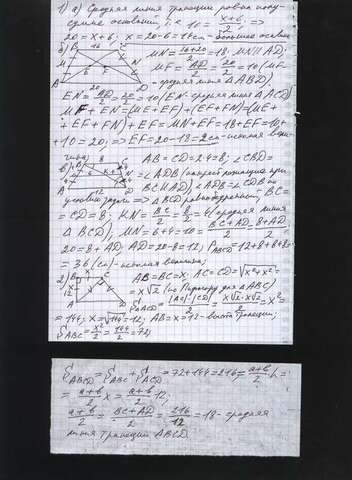 1) а) Средняя линия трапеции равна полу-
сумме оснований, т.к. 10 = (x+6)/2 =>
20 = x+6; x = 20-6 = 14 см - большее основ.
б) B 16 C MN = (16+20)/2 = 18; MN ∥ AD;
M E F N MF = AD/2 = 20/2 = 10 (MF
A 20 D - средняя линия △ABD),
EN = AD/2 = 20/2 = 10 (EN - средняя линия △ACD)
MF + EN = (ME+EF) + (EF+FN) = (ME+
+EF+FN) + EF = MN + EF = 18 + EF = 10+
+10 = 20; => EF = 20-18 = 2 см - искомая вели-
чина;
в) B 8 C AB = CD = 2·4 = 8; ∠CBD =
= ∠ADB (накрест лежащие при
BC ∥ AD), ∠ADB = ∠CDB по
условию задачи => △CBD равнобедренный, BC =
= CD = 8; KN = BC/2 = 8/2 = 4 (средняя линия
△BCD), MN = 6+4 = 10 = (BC+AD)/2 = (8+AD)/2
20 = 8 + AD; AD = 20-8 = 12; P ABCD = 12+8+8+8=
= 36 (см) - искомая величина;
2) B x C AB = BC = x; AC = CD = √(x²+x²) =
= x√2 (по Пифагору для △ABC)
A D S ACD = |AC|·|CD|/2 = x√2·x√2/2 = x² =
= 144; x = √144 = 12; AB = x = 12 - высота трапеции;
S ABC = x²/2 = 144/2 = 72;
S ABCD = S ABC + S ACD = 72 + 144 = 216 = (a+b)/2 · h =
= (a+b)/2 · x = (a+b)/2 · 12;
(a+b)/2 = (BC+AD)/2 = 216/12 = 18 - средняя
линия трапеции ABCD.